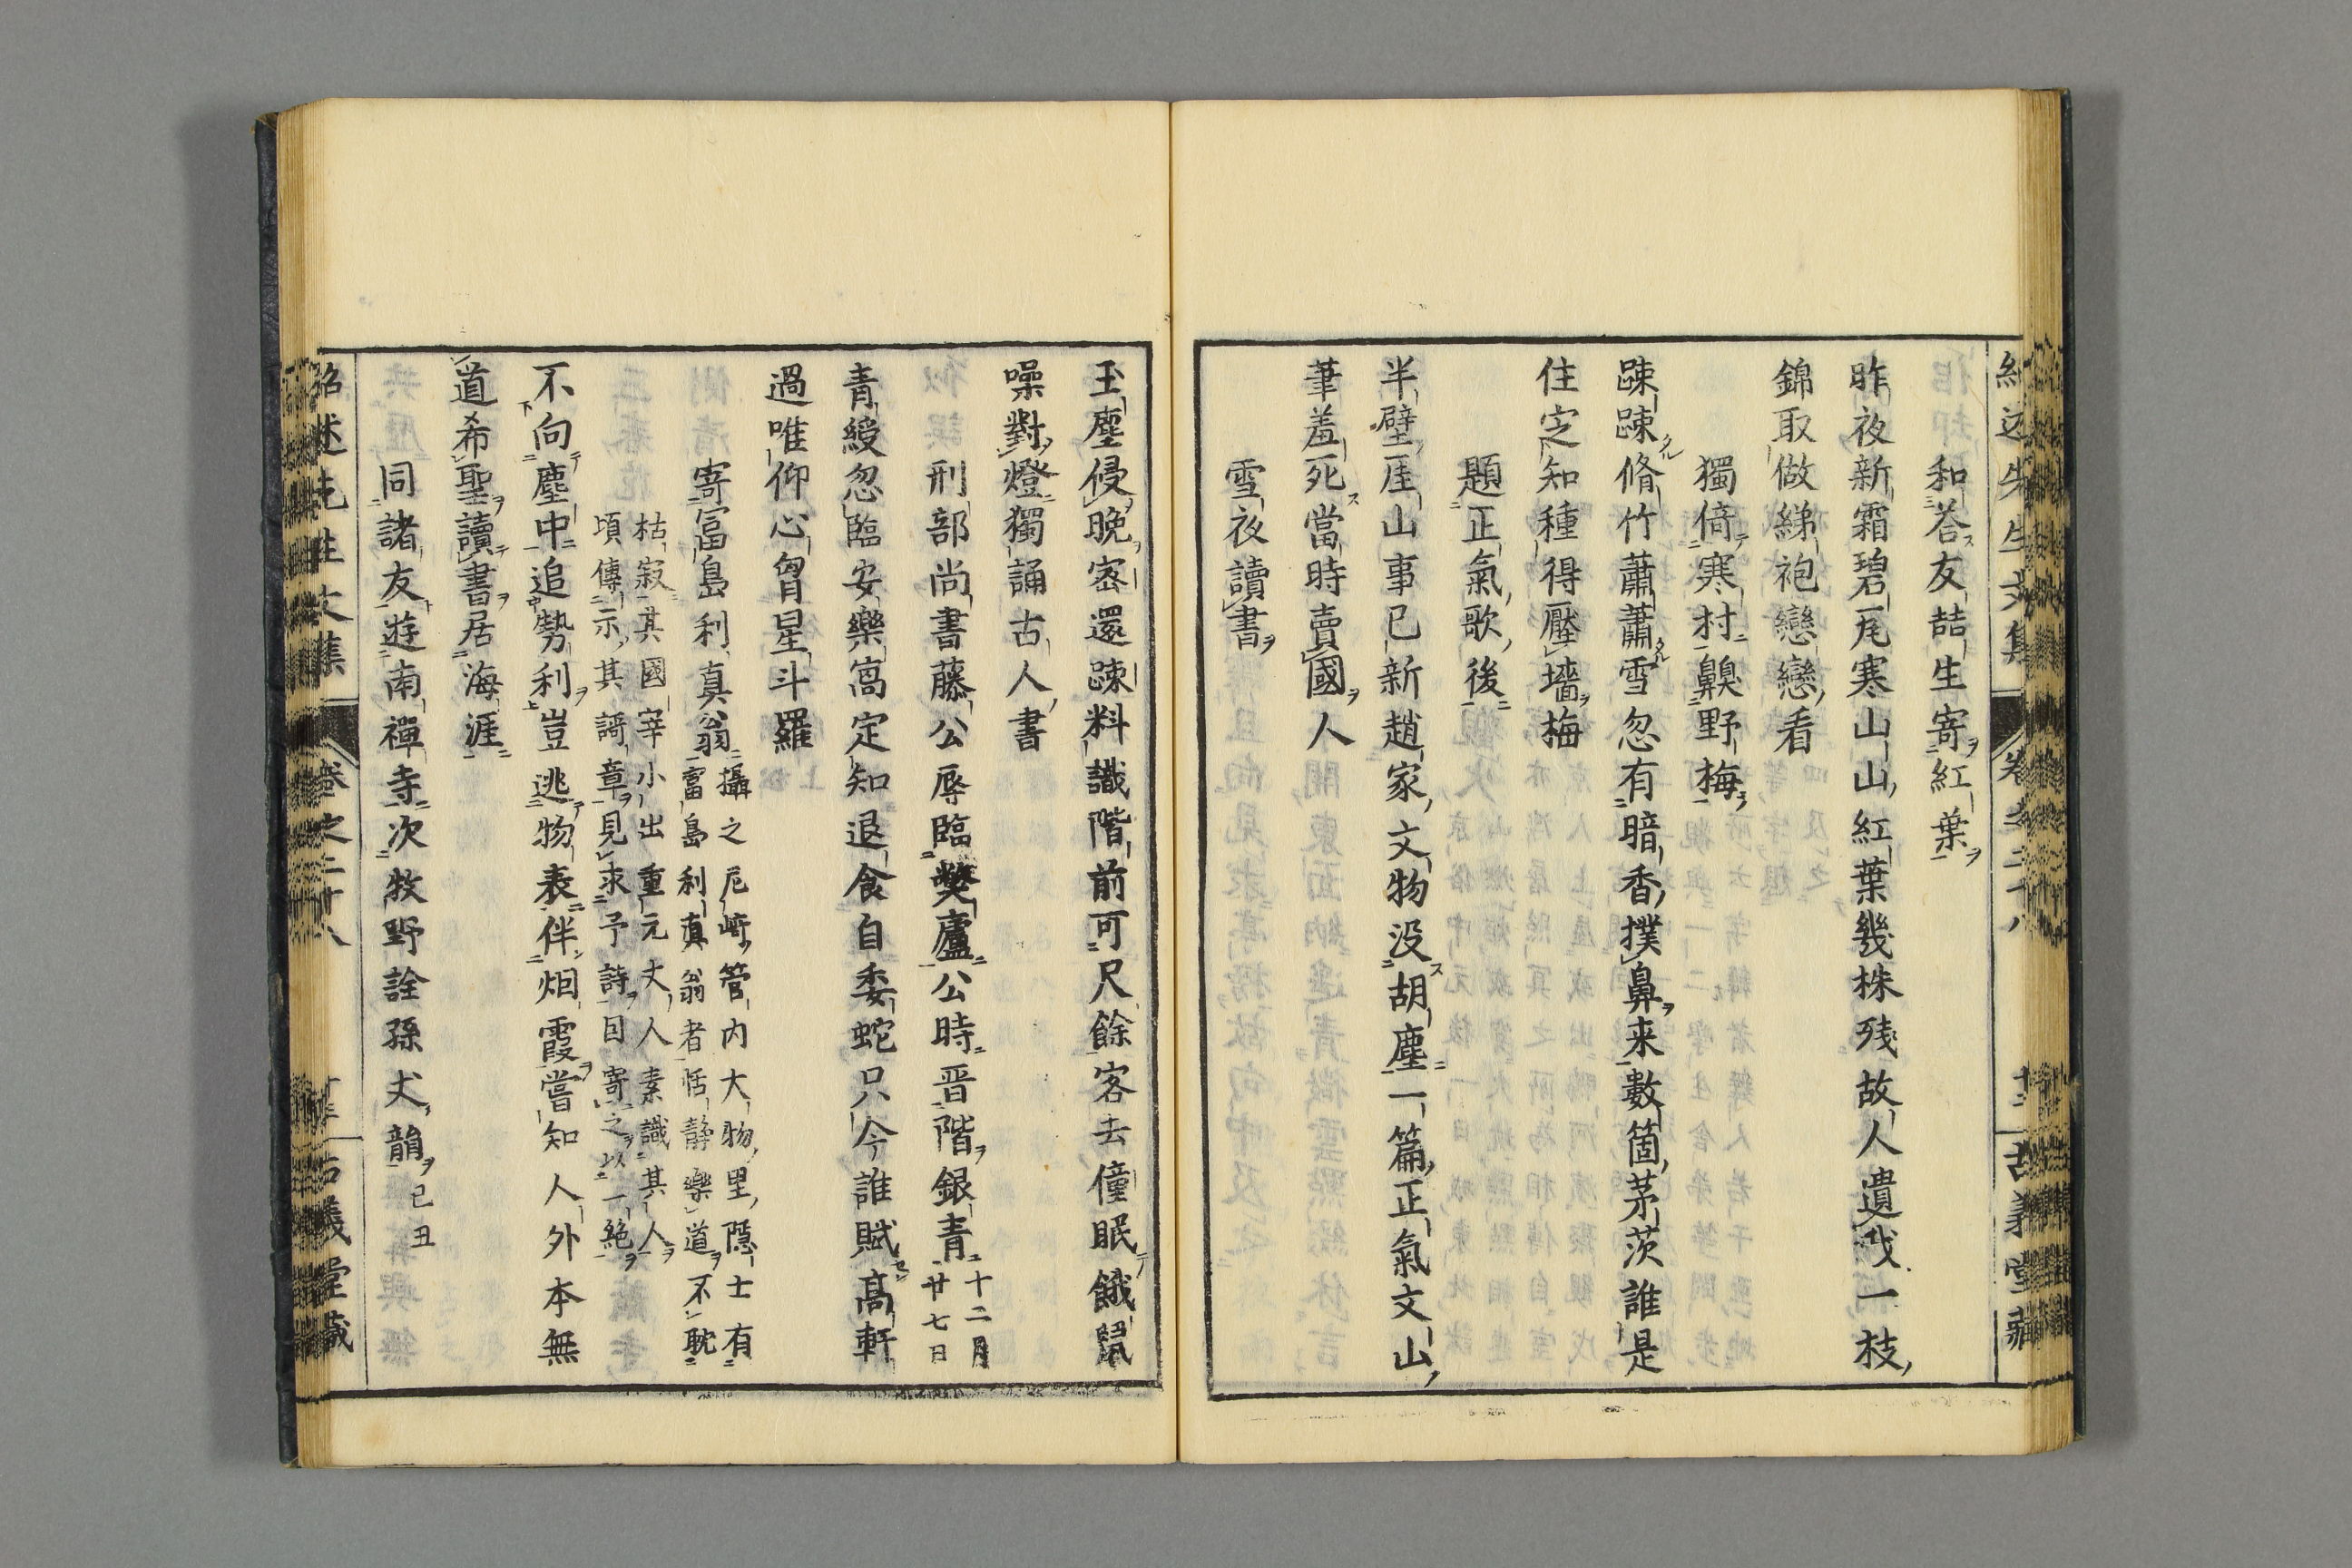 和荅友喆生寄紅葉
昨夜新霜碧瓦寒山山紅葉幾株殘故人遺我一枝
錦取做綈袍戀戀看
獨倚寒村齅野梅
踈踈脩竹蕭蕭雪忽有暗香撲鼻来數箇茅茨誰是
住定知種得壓墻梅
題正氣歌後
半壁厓山事已新趙家文物没胡塵一篇正氣文山
筆羞死當時賣國人
雪夜讀書
卷之二十八
古義堂藏
玉塵侵晩密還踈料識階前可尺餘客去僮眠餓鼠
噪對燈獨誦古人書
刑部尚書藤公辱臨弊廬公時晋階銀青十二月
廿七日
青綬忽臨安樂窩定知退食自委蛇只今誰賦高軒
過唯仰心胷星斗羅
寄冨島利真翁攝之尼﨑管内大物里隱士有
富島利真翁者恬静樂道不耽
枯寂其國宰小出重元丈人素識其人
頃傳示其謌章見求予詩因寄之以一絶
不向塵中追勢利豈逃物表伴烟霞嘗知人外本無
道希聖讀書居海涯
同諸友遊南禪寺次牧野詮孫丈韻己丑
紹述先生文集
卷之二十八
古義堂藏